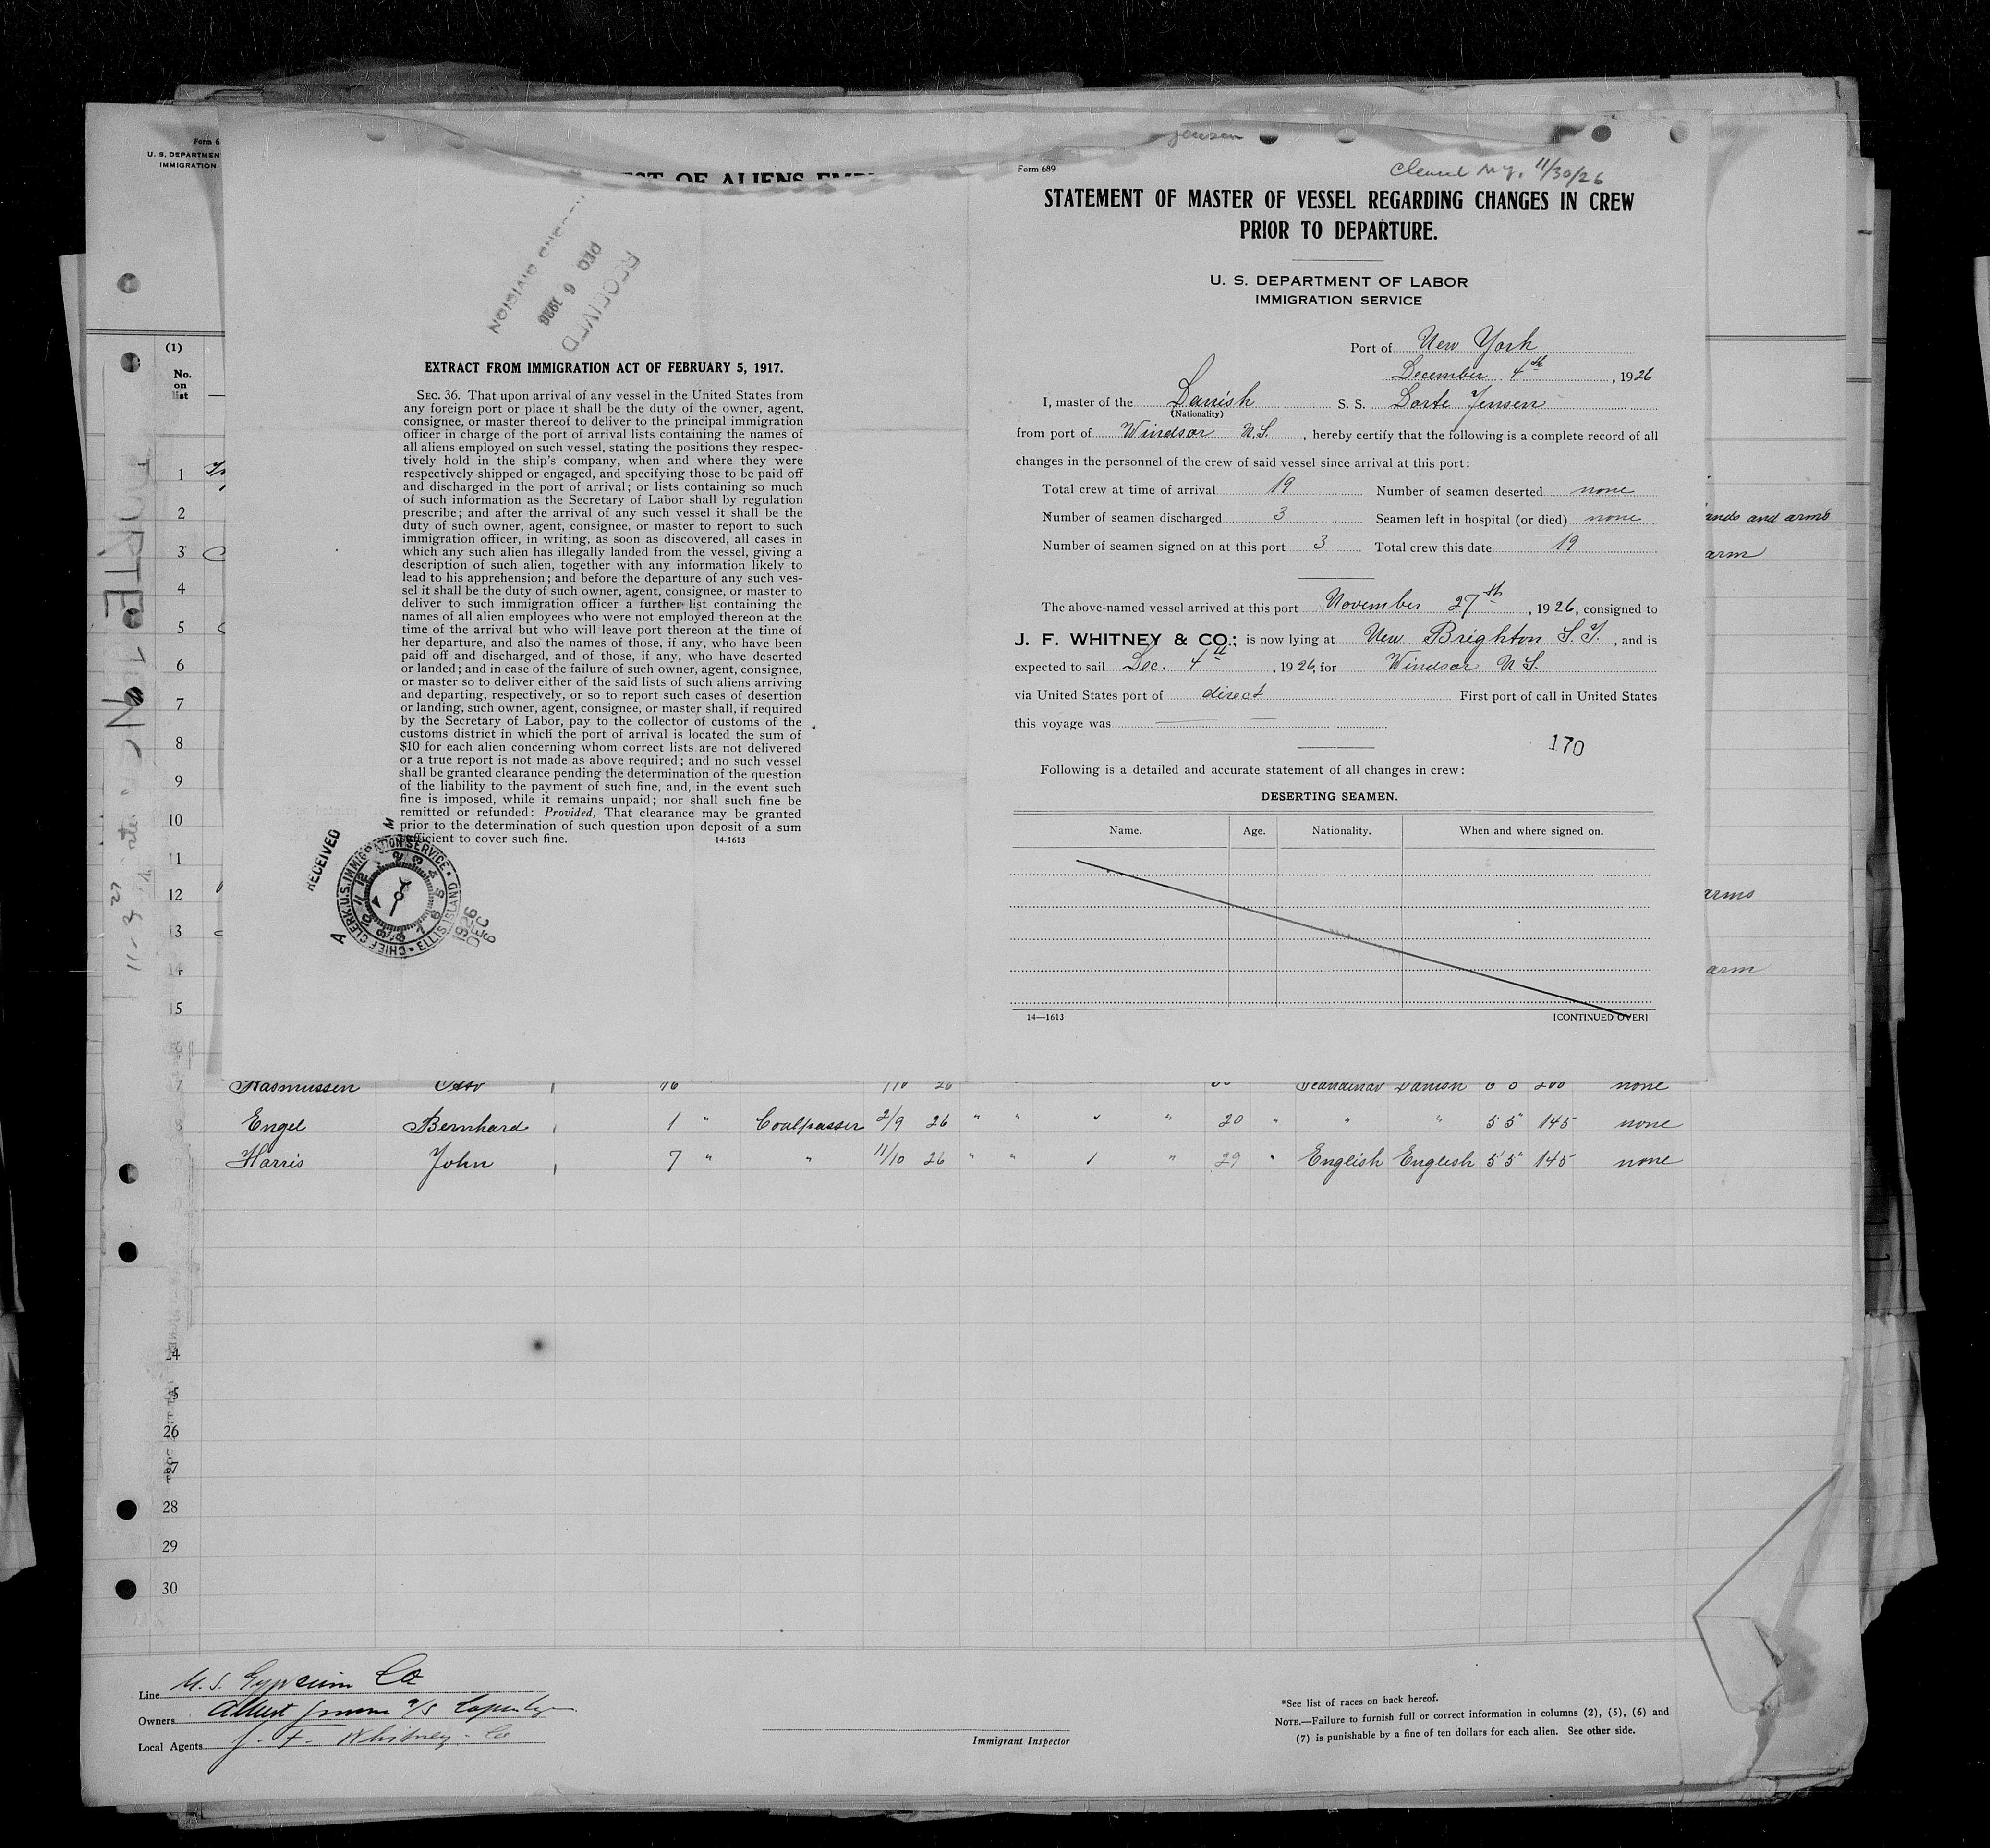 Jensen
Form 689
Cleared N.Y. 11/30/26
STATEMENT OF MASTER OF VESSEL REGARDING CHANGES IN CREW
PRIOR TO DEPARTURE.
U. S. DEPARTMENT OF LABOR
IMMIGRATION SERVICE
Port of New York
December 4th, 1926
I, master of the Danish S. S. Dorte Jensen
(Nationality)
from port of Windsor N.S., hereby certify that the following is a complete record of all
changes in the personnel of the crew of said vessel since arrival at this port:
Total crew at time of arrival 19 Number of seamen deserted none
Number of seamen discharged 3 Seamen left in hospital (or died) none
Number of seamen signed on at this port 3 Total crew this date 19
The above-named vessel arrived at this port November 27th, 1926, consigned to
J. F. WHITNEY & CO.; is now lying at New Brighton S.I., and is
expected to sail Dec. 4th, 1926, for Windsor N.S.
via United States port of direct First port of call in United States
this voyage was
170
Following is a detailed and accurate statement of all changes in crew:
DESERTING SEAMEN.
Name. Age. Nationality. When and where signed on.
14—1613 [CONTINUED OVER]
RECEIVED
DEC 6 1926
DIVISION
EXTRACT FROM IMMIGRATION ACT OF FEBRUARY 5, 1917.
SEC. 36. That upon arrival of any vessel in the United States from
any foreign port or place it shall be the duty of the owner, agent,
consignee, or master thereof to deliver to the principal immigration
officer in charge of the port of arrival lists containing the names of
all aliens employed on such vessel, stating the positions they respec-
tively hold in the ship's company, when and where they were
respectively shipped or engaged, and specifying those to be paid off
and discharged in the port of arrival; or lists containing so much
of such information as the Secretary of Labor shall by regulation
prescribe; and after the arrival of any such vessel it shall be the
duty of such owner, agent, consignee, or master to report to such
immigration officer, in writing, as soon as discovered, all cases in
which any such alien has illegally landed from the vessel, giving a
description of such alien, together with any information likely to
lead to his apprehension; and before the departure of any such ves-
sel it shall be the duty of such owner, agent, consignee, or master to
deliver to such immigration officer a further list containing the
names of all alien employees who were not employed thereon at the
time of the arrival but who will leave port thereon at the time of
her departure, and also the names of those, if any, who have been
paid off and discharged, and of those, if any, who have deserted
or landed; and in case of the failure of such owner, agent, consignee,
or master so to deliver either of the said lists of such aliens arriving
and departing, respectively, or so to report such cases of desertion
or landing, such owner, agent, consignee, or master shall, if required
by the Secretary of Labor, pay to the collector of customs of the
customs district in which the port of arrival is located the sum of
$10 for each alien concerning whom correct lists are not delivered
or a true report is not made as above required; and no such vessel
shall be granted clearance pending the determination of the question
of the liability to the payment of such fine, and, in the event such
fine is imposed, while it remains unpaid; nor shall such fine be
remitted or refunded: Provided, That clearance may be granted
prior to the determination of such question upon deposit of a sum
sufficient to cover such fine. 14-1613
RECEIVED
CHIEF CLERK, U.S. IMMIGRATION SERVICE • ELLIS ISLAND
A M
1926 DEC 6
Form 6
U. S. DEPARTMEN
IMMIGRATION
ST OF ALIENS EMP
(1)
No.
on
list
1
2 ands and arms
3 arm
4
5
6
7
8
9
10
11
12 arms
13
14 arm
15
Rasmussen Otto 26 Scandinav Danish none
Engel Bernhard 1 " Coalpasser 2/9 26 " " " " 20 " " " 5 5" 145 none
Harris John 7 " " 11/10 26 " " 1 " 29 " English English 5'5" 145 none
24
26
27
28
29
30
Line U. S. Gypsum Co
Owners Albert Jensen A/S
Local Agents J. F. Whitney Co
Immigrant Inspector
*See list of races on back hereof.
NOTE.—Failure to furnish full or correct information in columns (2), (5), (6) and
(7) is punishable by a fine of ten dollars for each alien. See other side.